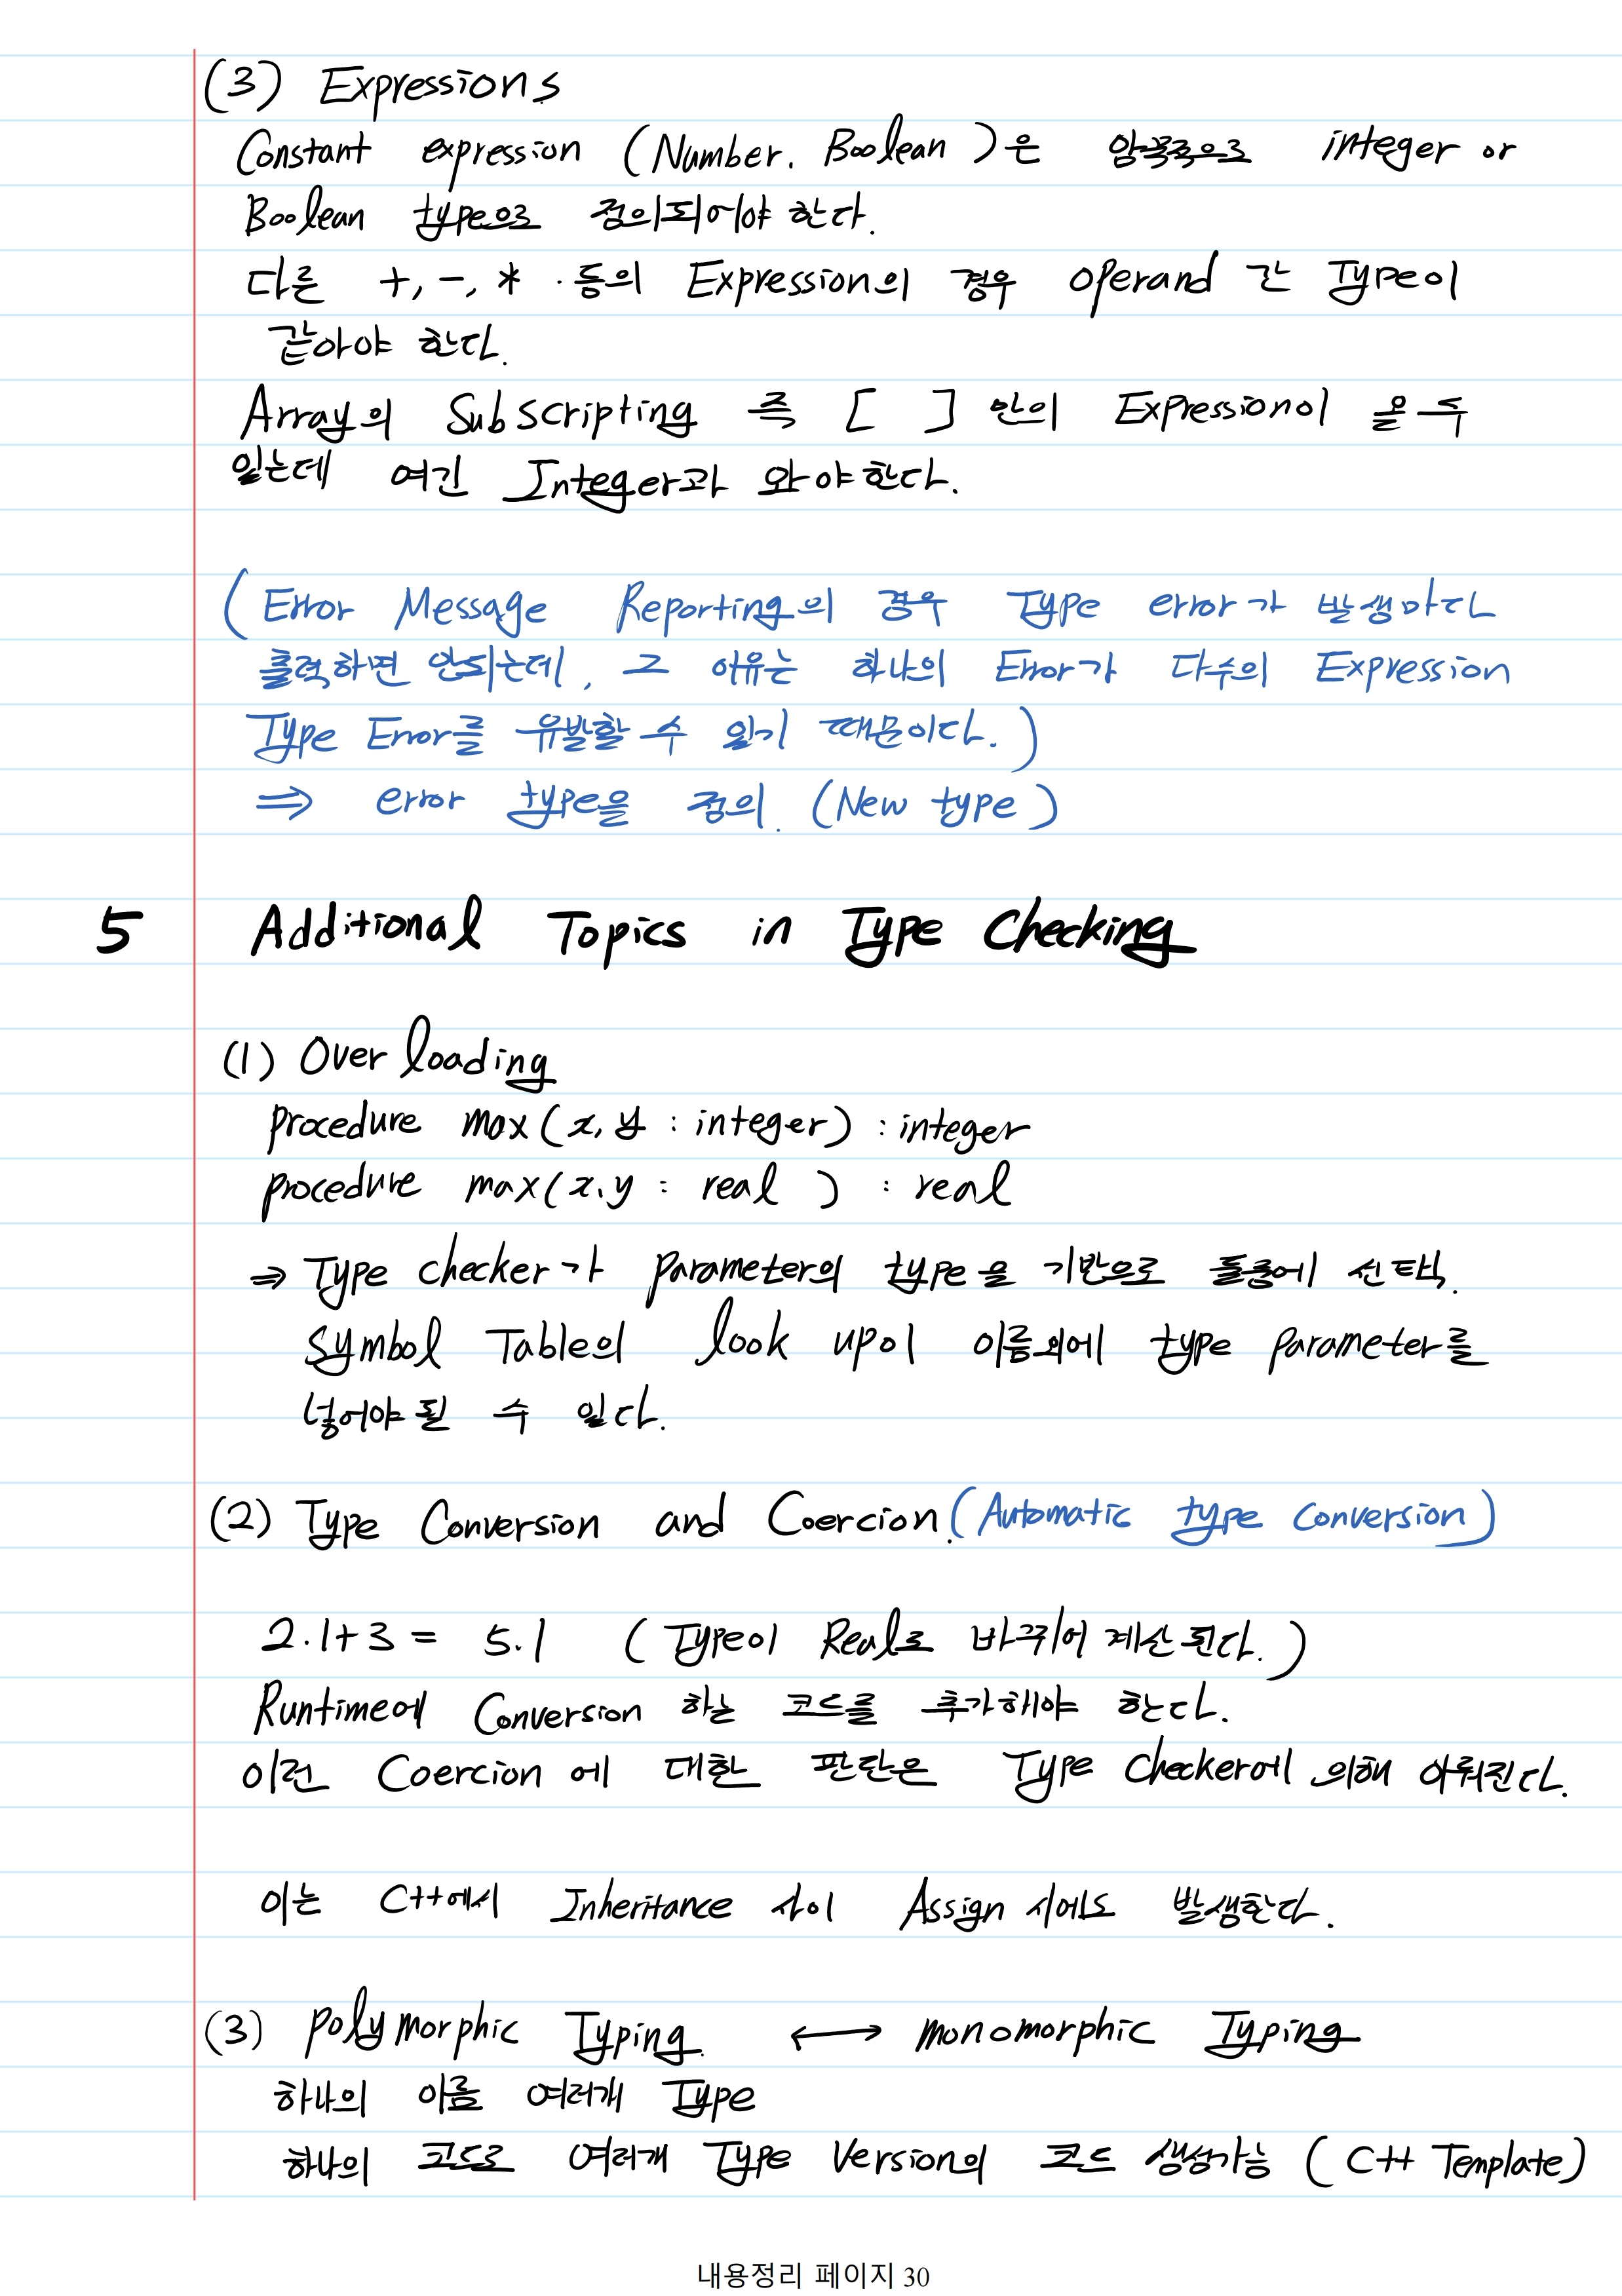 (3) Expressions
Constant expression (Number, Boolean)은 암묵적으로 integer or
Boolean type으로 정의되어야 한다.
다른 +, -, * 등의 Expression의 경우 operand 간 Type이
같아야 한다.
Array의 Subscripting 즉 [ ] 안의 Expression이 올 수
있는데 여긴 Integer과 와야한다.
(Error Message Reporting의 경우 Type error가 발생마다
출력하면 안되는데, 그 이유는 하나의 Error가 다수의 Expression
Type Error를 유발할 수 있기 때문이다.)
⇒ error type을 정의. (New type)
5 Additional Topics in Type Checking
(1) Overloading
procedure max(x, y : integer) : integer
procedure max(x, y : real ) : real
⇒ Type checker가 parameter의 type을 기반으로 둘중에 선택.
Symbol Table의 look up이 이름외에 type parameter를
넣어야 될 수 있다.
(2) Type Conversion and Coercion. (Automatic type Conversion)
2.1+3 = 5.1 (Type이 Real로 바뀌어 계산된다.)
Runtime에 Conversion 하는 코드를 추가해야 한다.
이런 Coercion에 대한 판단은 Type Checker에 의해 이뤄진다.
이는 C++에서 Inheritance 사이 Assign 시에도 발생한다.
(3) Polymorphic Typing. ↔ monomorphic Typing
하나의 이름 여러개 Type
하나의 코드로 여러개 Type Version의 코드 생성가능 (C++ Template)
내용정리 페이지 30